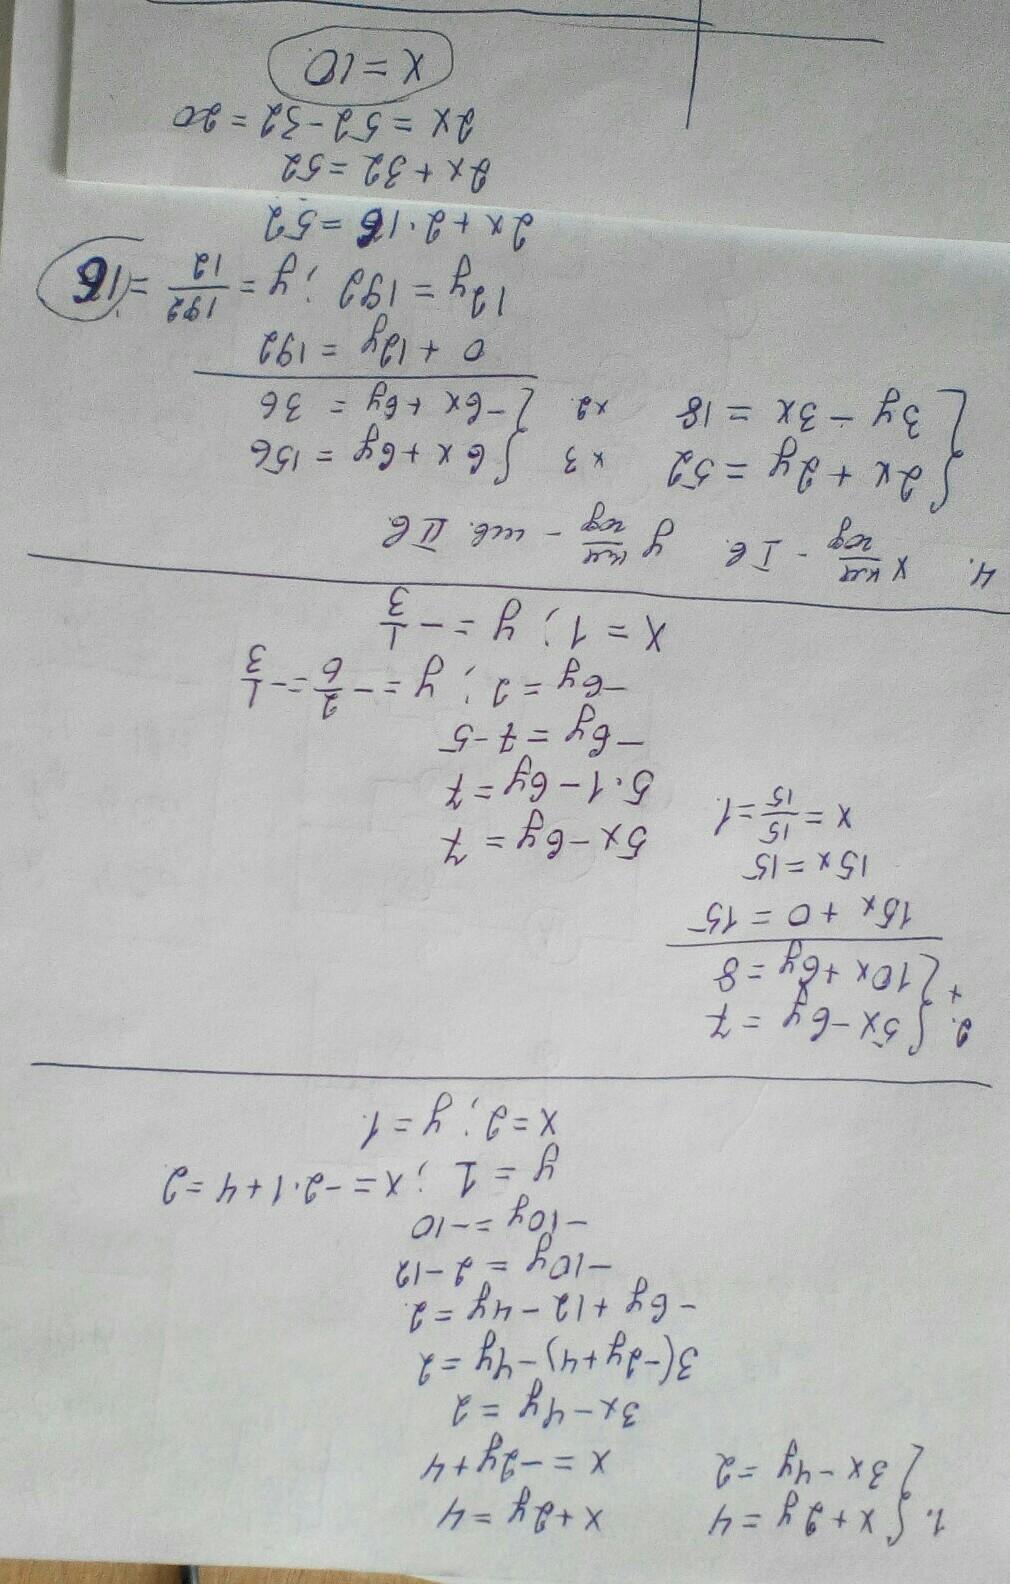 1. { x + 2y = 4 x + 2y = 4
3x - 4y = 2 x = -2y + 4
3x - 4y = 2
3(-2y + 4) - 4y = 2
-6y + 12 - 4y = 2.
-10y = 2 - 12
-10y = -10
y = 1 ; x = -2·1 + 4 = 2
x = 2 ; y = 1.
2. { 5x - 6y = 7
+ 10x + 6y = 8
15x + 0 = 15
15x = 15
x = 15/15 = 1.
5x - 6y = 7
5·1 - 6y = 7
-6y = 7 - 5
-6y = 2 ; y = -2/6 = -1/3
x = 1 ; y = -1/3
4. x км/год - I в. y км/год - шв. II в.
{ 2x + 2y = 52 ×3 { 6x + 6y = 156
3y - 3x = 18 ×2. -6x + 6y = 36
0 + 12y = 192
12y = 192 ; y = 192/12 = 16
2x + 2·16 = 52
2x + 32 = 52
2x = 52 - 32 = 20
x = 10.